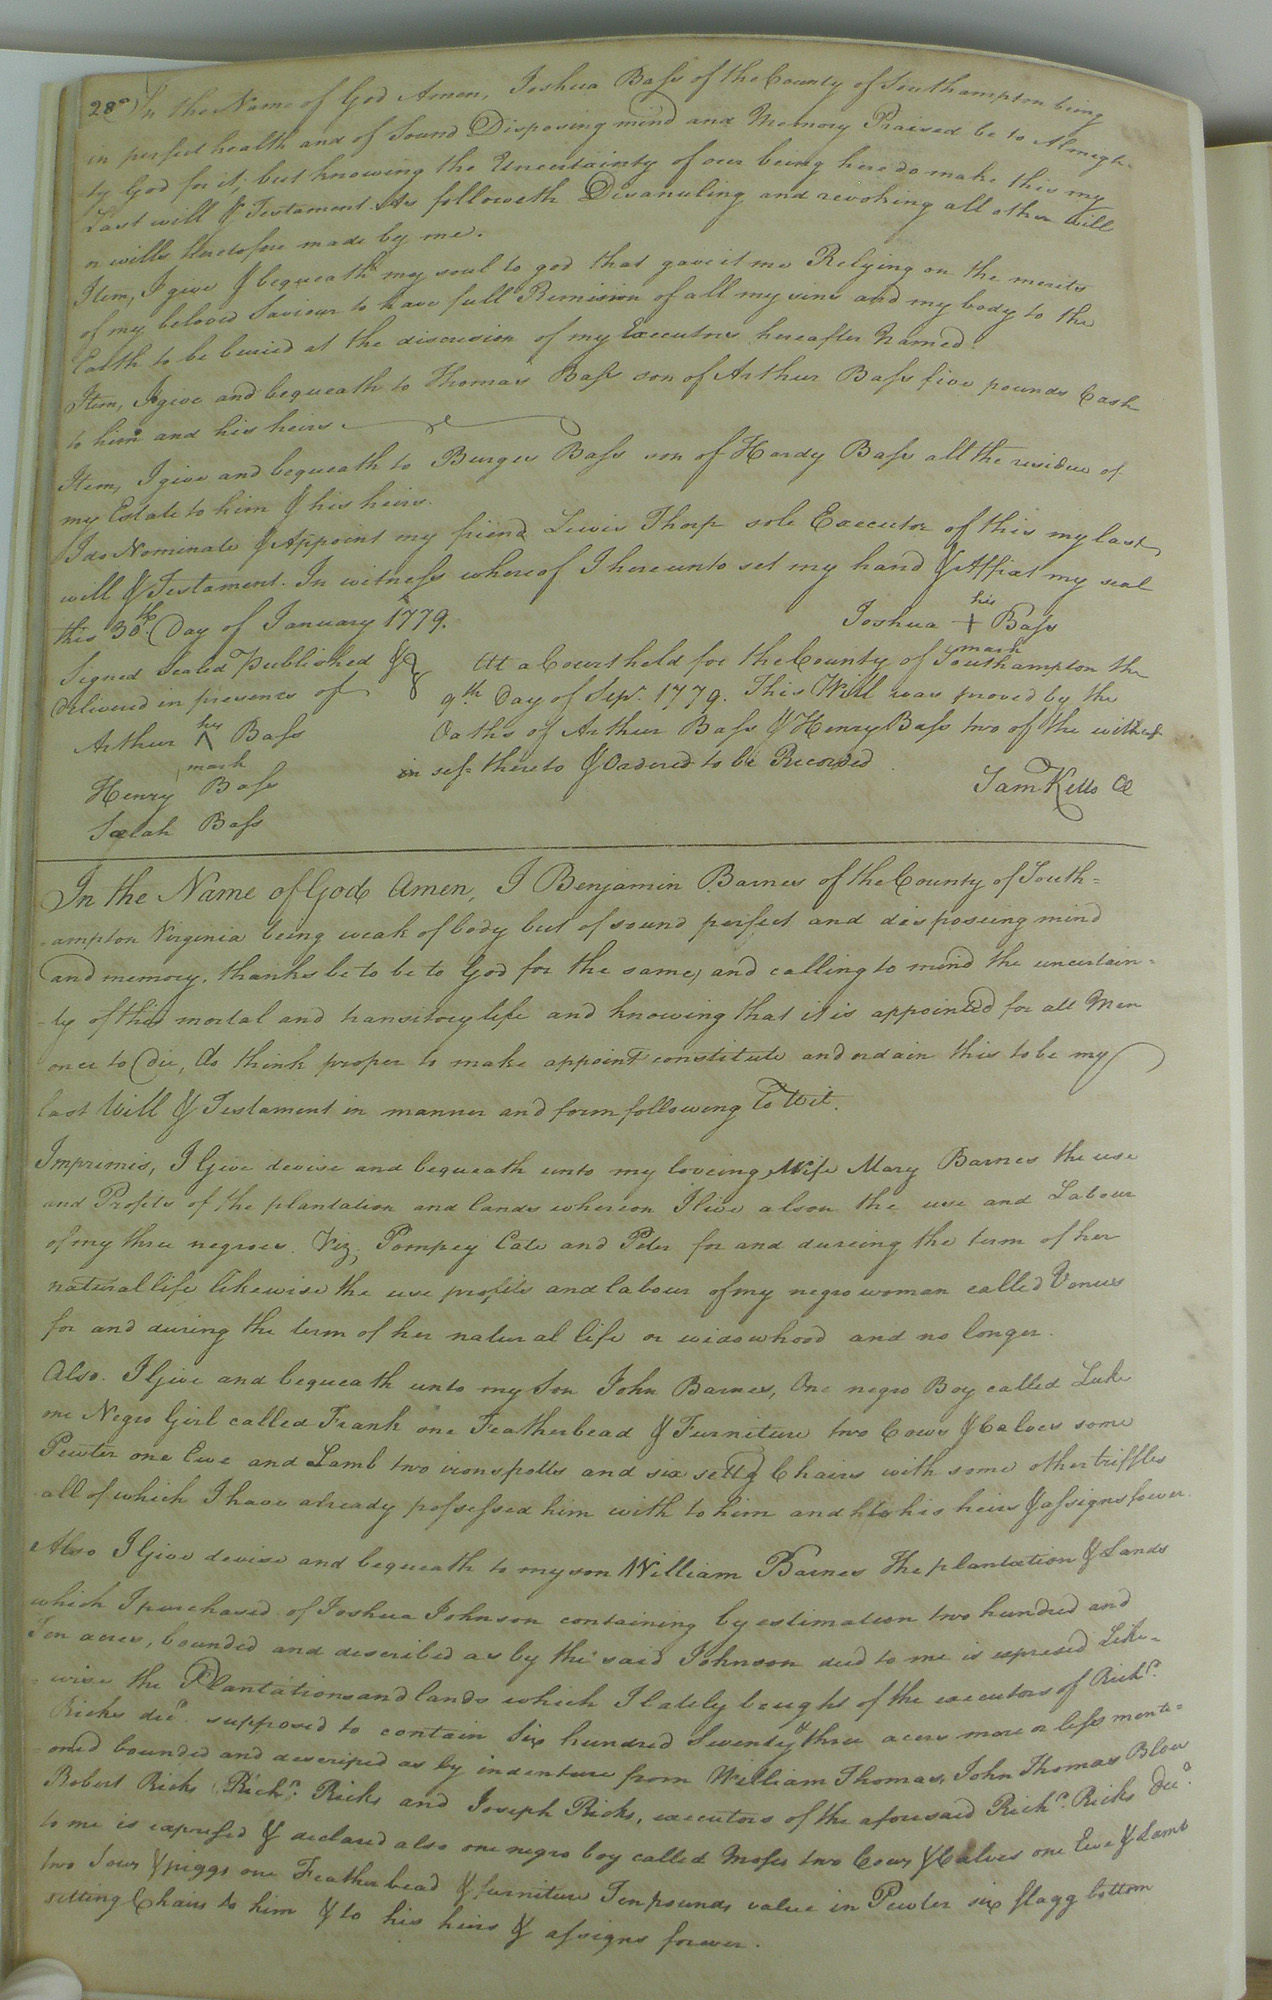 280 In the Name of God Amen, Joshua Bass of the County of Southampton being
in perfect health and of Sound Disposing mind and Memory Praised be to Almigh-
ty God for it; but knowing the Uncertainty of our being here do make this my
Last will & Testament As followeth Disanuling and revoking all other Will
or wills heretofore made by me.
Item, I give & bequeath my soul to god that gave it me Relying on the merits
of my beloved Saviour to have full Remision of all my sins and my body to the
Earth to be buried at the discresion of my Executors hereafter Named.
Item, I give and bequeath to Thomas Bass son of Arthur Bass five pounds Cash
to him and his heirs.
Item, I give and bequeath to Burges Bass son of Hardy Bass all the residue of
my Estate to him & his heirs.
I do Nominate & Appoint my friend Lewis Thorp sole Executor of this my last
will & Testament. In witness whereof I hereunto set my hand & Affixt my seal
this 30th Day of January 1779.
his
Joshua + Bass
mark
Signed Sealed Published &
Delivered in presence of
Arthur his Bass
mark
Henry Bass
Sarah Bass
At a Court held for the County of Southampton the
9th Day of Sepr. 1779. This Will was proved by the
Oaths of Arthur Bass & Henry Bass two of the witnes-
ses thereto & Ordered to be Recorded
Sam Kello Cl
In the Name of God Amen, I Benjamin Barnes of the County of South=
-ampton Virginia being weak of body but of sound perfect and disposeing mind
and memory, thanks be to be to God for the same, and calling to mind the uncertain=
-ty of this mortal and transitory life and knowing that it is appointed for all Men
once to Die, do think proper to make appoint constitute and ordain this to be my
last Will & Testament in manner and form following To Wit.
Impremis, I Give devise and bequeath unto my loveing Wife Mary Barnes the use
and Profits of the plantation and lands whereon I live also the use and Labour
of my three negroes. Viz; Pompey Cate and Peter for and dureing the term of her
natural life likewise the use profits and labour of my negro woman called Venus
for and during the term of her natural life or widowhood and no longer.
Also. I Give and bequeath unto my Son John Barnes, One negro Boy called Luke
one Negro Girl called Frank one Featherbead & Furniture two Cows & Calves some
Pewter one Ewe and Lamb two irons potts and six settg Chairs with some other triffles
all of which I have already possessed him with to him and to his heirs & assigns forever.
Also I Give devise and bequeath to my son William Barnes the plantation & Lands
which I purchased of Joshua Johnson containing by estimation two hundred and
Ten acres, bounded and described as by the said Johnson deed to me is expresed Like-
-wise the Plantations and lands which I lately bought of the executors of Richd.
Ricks decd. supposed to contain Six hundred Seventy & three acers more or less menti=
oned bounded and descriped as by indenture from William Thomas, John Thomas Blow
Robert Ricks Richd. Ricks and Joseph Ricks, executors of the aforesaid Richd. Ricks decd.
to me is expressed & declared also one negro boy called Moses two Cows & Calves one Ewe & Lamb
two Sows & piggs one Featherbead & furniture Ten pounds value in Pewter six flagg bottom
setting Chairs to him & to his heirs & assigns forever.